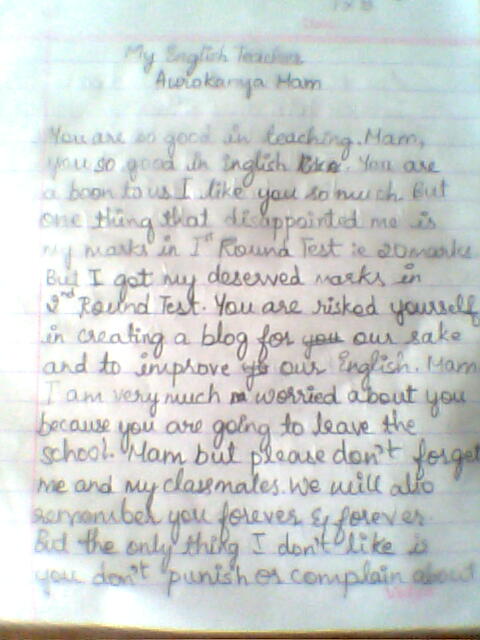 My English Teacher
Aurokanya Mam
You are so good in teaching. Mam,
you so good in English like. You are
a boon to us I like you so much. But
one thing that disappointed me is
my marks in 1st Round Test ie 20 marks
But I got my deserved marks in
2nd Round Test. You are risked yourself
in creating a blog for you our sake
and to improve our English. Mam
I am very much worried about you
because you are going to leave the
school. Mam but please don't forget
me and my classmates. We will also
remember you forever & forever.
But the only thing I don't like is
you don't punish or complain about